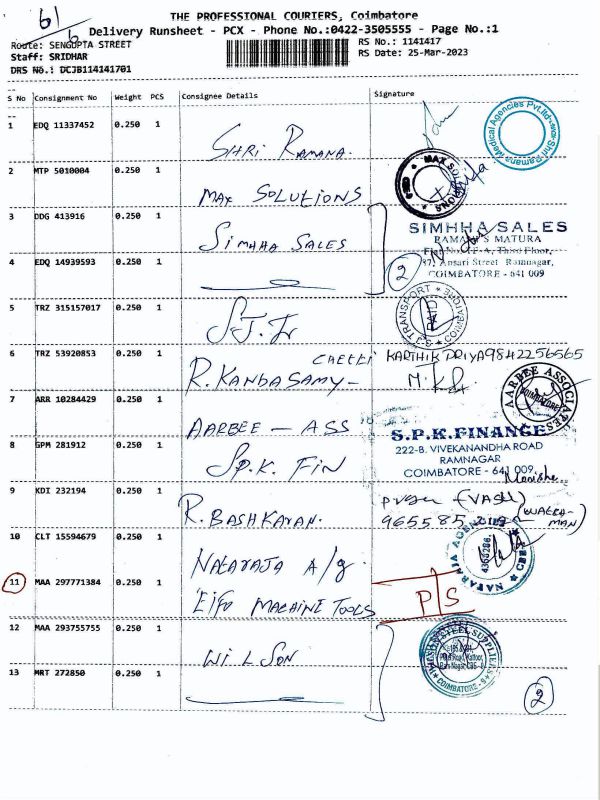 61
6
THE PROFESSIONAL COURIERS, Coimbatore
Delivery Runsheet - PCX - Phone No.:0422-3505555 - Page No.:1
Route: SENGUPTA STREET
RS No.: 1141417
Staff: SRIDHAR
RS Date: 25-Mar-2023
DRS No.: DCJB114141701
S No Consignment No Weight PCS Consignee Details Signature
1 EDQ 11337452 0.250 1 SHRI RAMANA.
Shri Ramana Medical Agencies Pvt.Ltd
2 MTP 5010004 0.250 1 MAX SOLUTIONS
MAX SOLUTIONS
3 DDG 413916 0.250 1 SIMHHA SALES
SIMHHA SALES
RAMANI'S MATURA
Third Floor,
Ansari Street Ramnagar,
COIMBATORE - 641 009
4 EDQ 14939593 0.250 1
2
5 TRZ 315157017 0.250 1 S.J. Tr
S.J. TRANSPORT COIMBATORE
PAID
6 TRZ 53920853 0.250 1 R. KANDASAMY - CHETTI KARTHIK PRIYA 9842256565
7 ARR 10284429 0.250 1 AARBEE - ASS
AARBEE ASSOCIATES
COIMBATORE
8 GPM 281912 0.250 1 S.P.K. FIN
S.P.K.FINANCE
222-B, VIVEKANANDHA ROAD
RAMNAGAR
COIMBATORE - 641 009
9 KDI 232194 0.250 1 R. BASHKARAN.
(VASU)
(WATER-MAN)
10 CLT 15594679 0.250 1 NATARAJA A/g.
NATARAJA AGENCIES
11 MAA 297771384 0.250 1 EIFO MACHINE TOOLS P/S
12 MAA 293755755 0.250 1 WILSON
WILSON STEEL SUPPLIERS
COIMBATORE - 9
13 MRT 272850 0.250 1
2